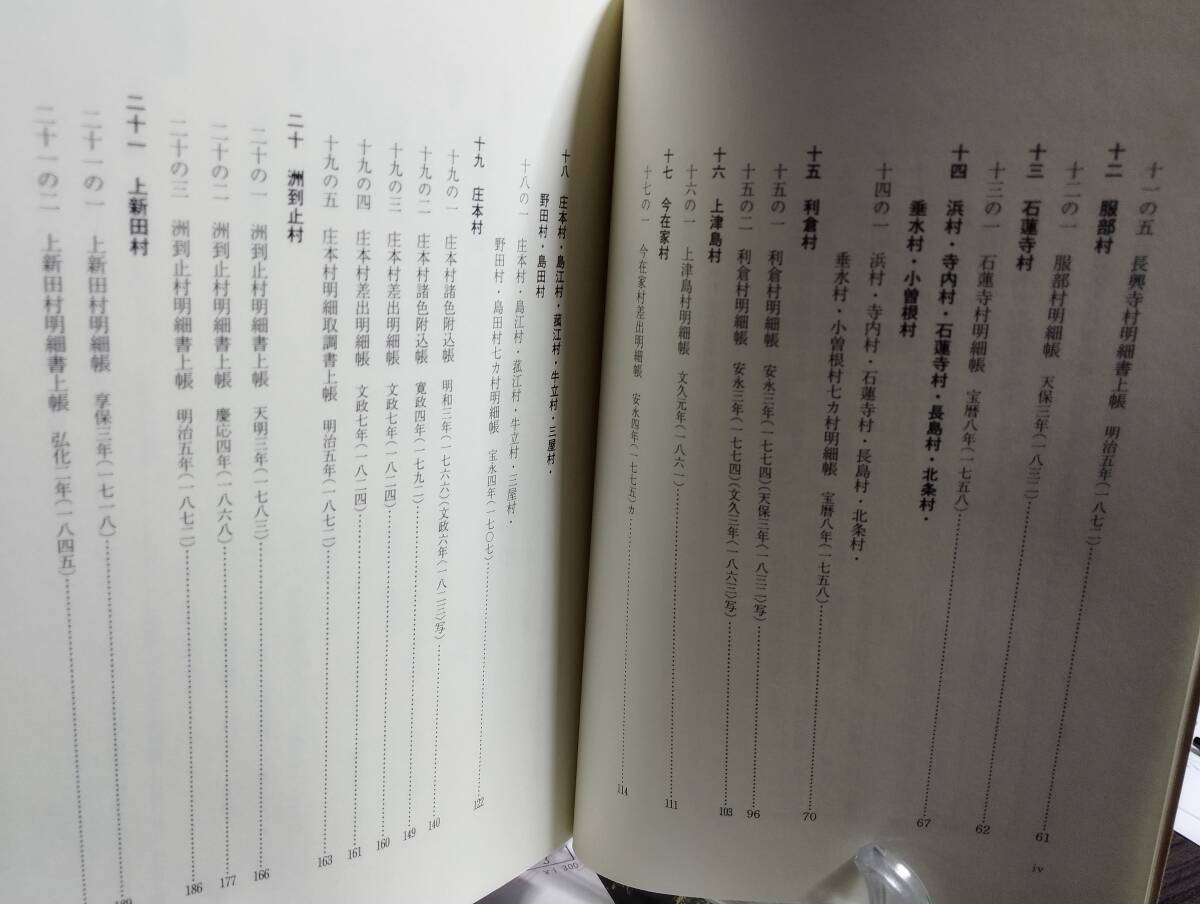 十一の五　長興寺村明細書上帳　明治五年(一八七二)………61
十二　服部村
十二の一　服部村明細帳　天保三年(一八三二)………62
十三　石蓮寺村
十三の一　石蓮寺村明細帳　宝暦八年(一七五八)………67
十四　浜村・寺内村・石蓮寺村・長島村・北条村・
垂水村・小曽根村
十四の一　浜村・寺内村・石蓮寺村・長島村・北条村・
垂水村・小曽根村七カ村明細帳　宝暦八年(一七五八)………70
十五　利倉村
十五の一　利倉村明細帳　安永三年(一七七四)(天保三年(一八三二)写)………96
十五の二　利倉村明細帳　安永三年(一七七四)(文久三年(一八六三)写)………103
十六　上津島村
十六の一　上津島村明細帳　文久元年(一八六一)………111
十七　今在家村
十七の一　今在家村差出明細帳　安永四年(一七七五)カ………114
iv
十八　庄本村・島江村・菰江村・牛立村・三屋村・
野田村・島田村
十八の一　庄本村・島江村・菰江村・牛立村・三屋村・
野田村・島田村七カ村明細帳　宝永四年(一七〇七)………122
十九　庄本村
十九の一　庄本村諸色附込帳　明和三年(一七六六)(文政六年(一八二三)写)………140
十九の二　庄本村諸色附込帳　寛政四年(一七九二)………149
十九の三　庄本村差出明細帳　文政七年(一八二四)………160
十九の四　庄本村差出明細帳　文政七年(一八二四)………161
十九の五　庄本村明細取調書上帳　明治五年(一八七二)………163
二十　洲到止村
二十の一　洲到止村明細書上帳　天明三年(一七八三)………166
二十の二　洲到止村明細書上帳　慶応四年(一八六八)………177
二十の三　洲到止村明細書上帳　明治五年(一八七二)………186
二十一　上新田村
二十一の一　上新田村明細帳　享保三年(一七一八)………189
二十一の二　上新田村明細書上帳　弘化二年(一八四五)………